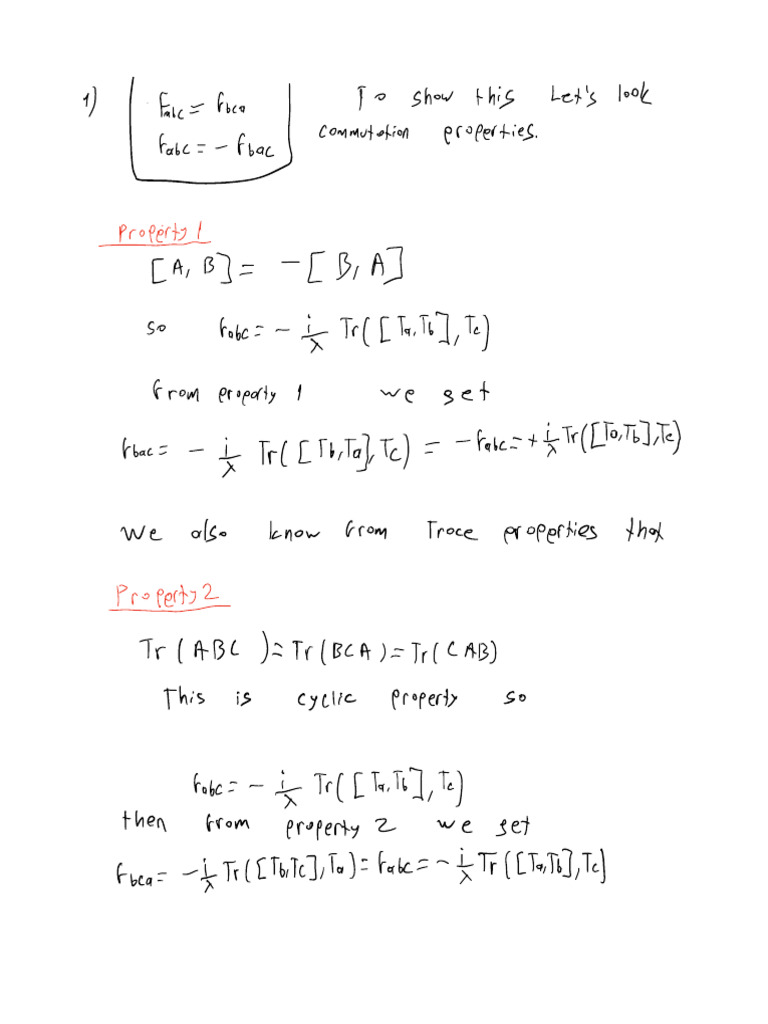 1) Fabc = fbca To show this Let's look
fabc = - fbac commutation properties.
Property 1
[A, B] = - [B, A]
so fabc = - i/λ Tr([Ta,Tb],Tc)
from property 1 we get
fbac = - i/λ Tr([Tb,Ta],Tc) = - fabc = + i/λ Tr([Ta,Tb],Tc)
We also know from Trace properties that
Property 2
Tr(ABC) = Tr(BCA) = Tr(CAB)
This is cyclic property so
fabc = - i/λ Tr([Ta,Tb],Tc)
then from property 2 we get
fbca = - i/λ Tr([Tb,Tc],Ta) = fabc = - i/λ Tr([Ta,Tb],Tc)